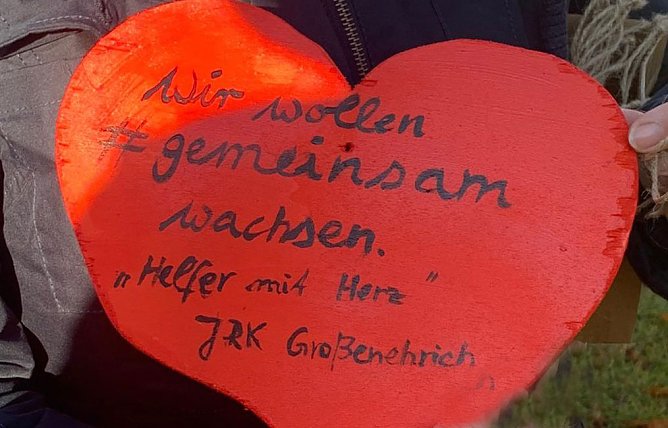 Wir wollen
#gemeinsam
wachsen.
„Helfer mit Herz"
JRK Großenehrich